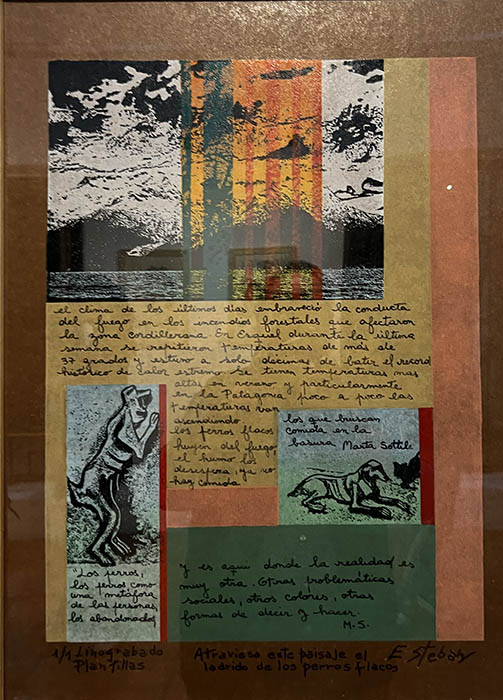 el clima de los últimos dias embraveció la conducta
del fuego en los incendios forestales que afectaron
la zona cordillerana. En Esquel durante la última
semana se registraron temperaturas de más de
37 grados y estuvo a solo décimas de batir el record
histórico de calor extremo. Se tienen temperaturas mas
altas en verano y particularmente
en la Patagonia poco a poco las
temperaturas van
ascendiendo
los perros flacos
huyen del fuego
el humo los
desespera, ya no
hay comida
los que buscan
comida en la
basura Marta Sottile
"Los perros,
los perros como
una metáfora
de las personas,
los abandonados
Y es aqui donde la realidad es
muy otra. Otras problemáticas
sociales, otros colores, otras
formas de decir y hacer.
M.S.
1/1 Linograbado
Plantillas
Atraviesa este paisaje el
ladrido de los perros flacos
Esteban